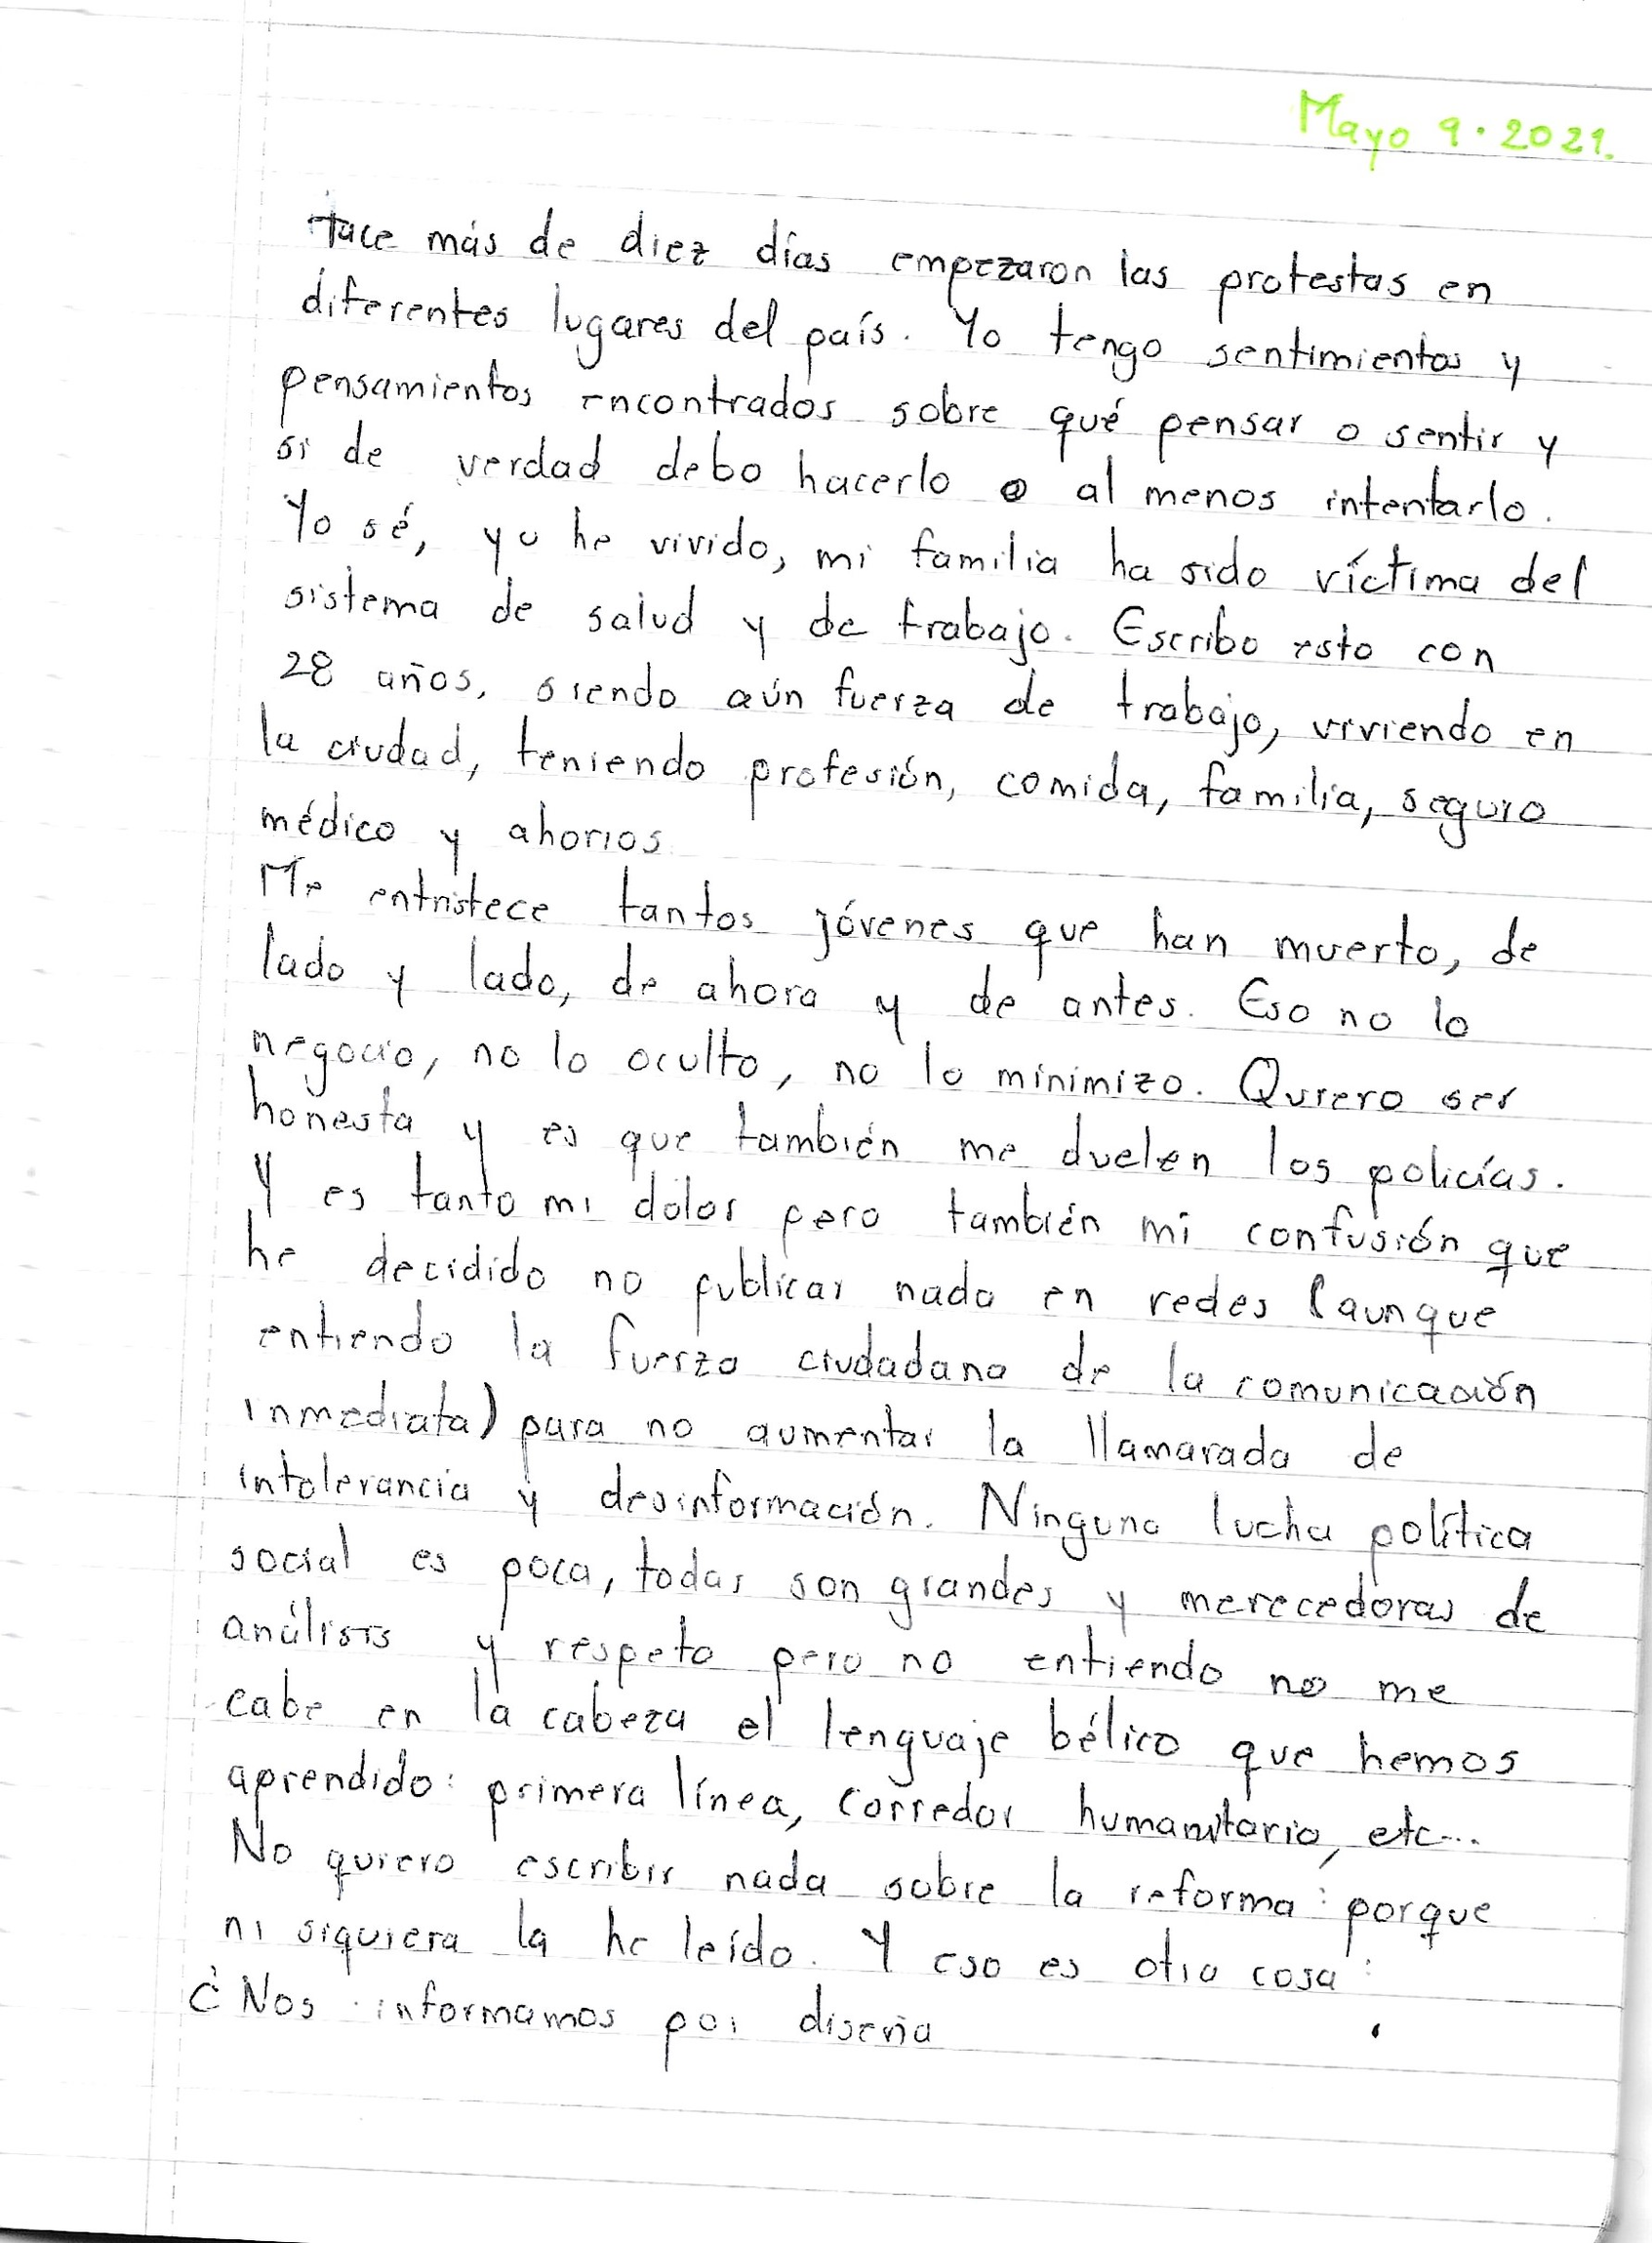 Mayo 9 · 2021.
Hace más de diez días empezaron las protestas en
diferentes lugares del país. Yo tengo sentimientos y
pensamientos encontrados sobre qué pensar o sentir y
si de verdad debo hacerlo o al menos intentarlo.
Yo sé, yo he vivido, mi familia ha sido víctima del
sistema de salud y de trabajo. Escribo esto con
28 años, siendo aún fuerza de trabajo, viviendo en
la ciudad, teniendo profesión, comida, familia, seguro
médico y ahorros
Me entristece tantos jóvenes que han muerto, de
lado y lado, de ahora y de antes. Eso no lo
negocio, no lo oculto, no lo minimizo. Quiero ser
honesta y es que también me duelen los policías.
Y es tanto mi dolor pero también mi confusión que
he decidido no publicar nada en redes (aunque
entiendo la fuerza ciudadana de la comunicación
inmediata) para no aumentar la llamarada de
intolerancia y desinformación. Ninguna lucha política
social es poca, todas son grandes y merecedoras de
análisis y respeto pero no entiendo no me
cabe en la cabeza el lenguaje bélico que hemos
aprendido: primera línea, corredor humanitario, etc...
No quiero escribir nada sobre la reforma: porque
ni siquiera la he leído. Y eso es otra cosa:
¿Nos informamos por